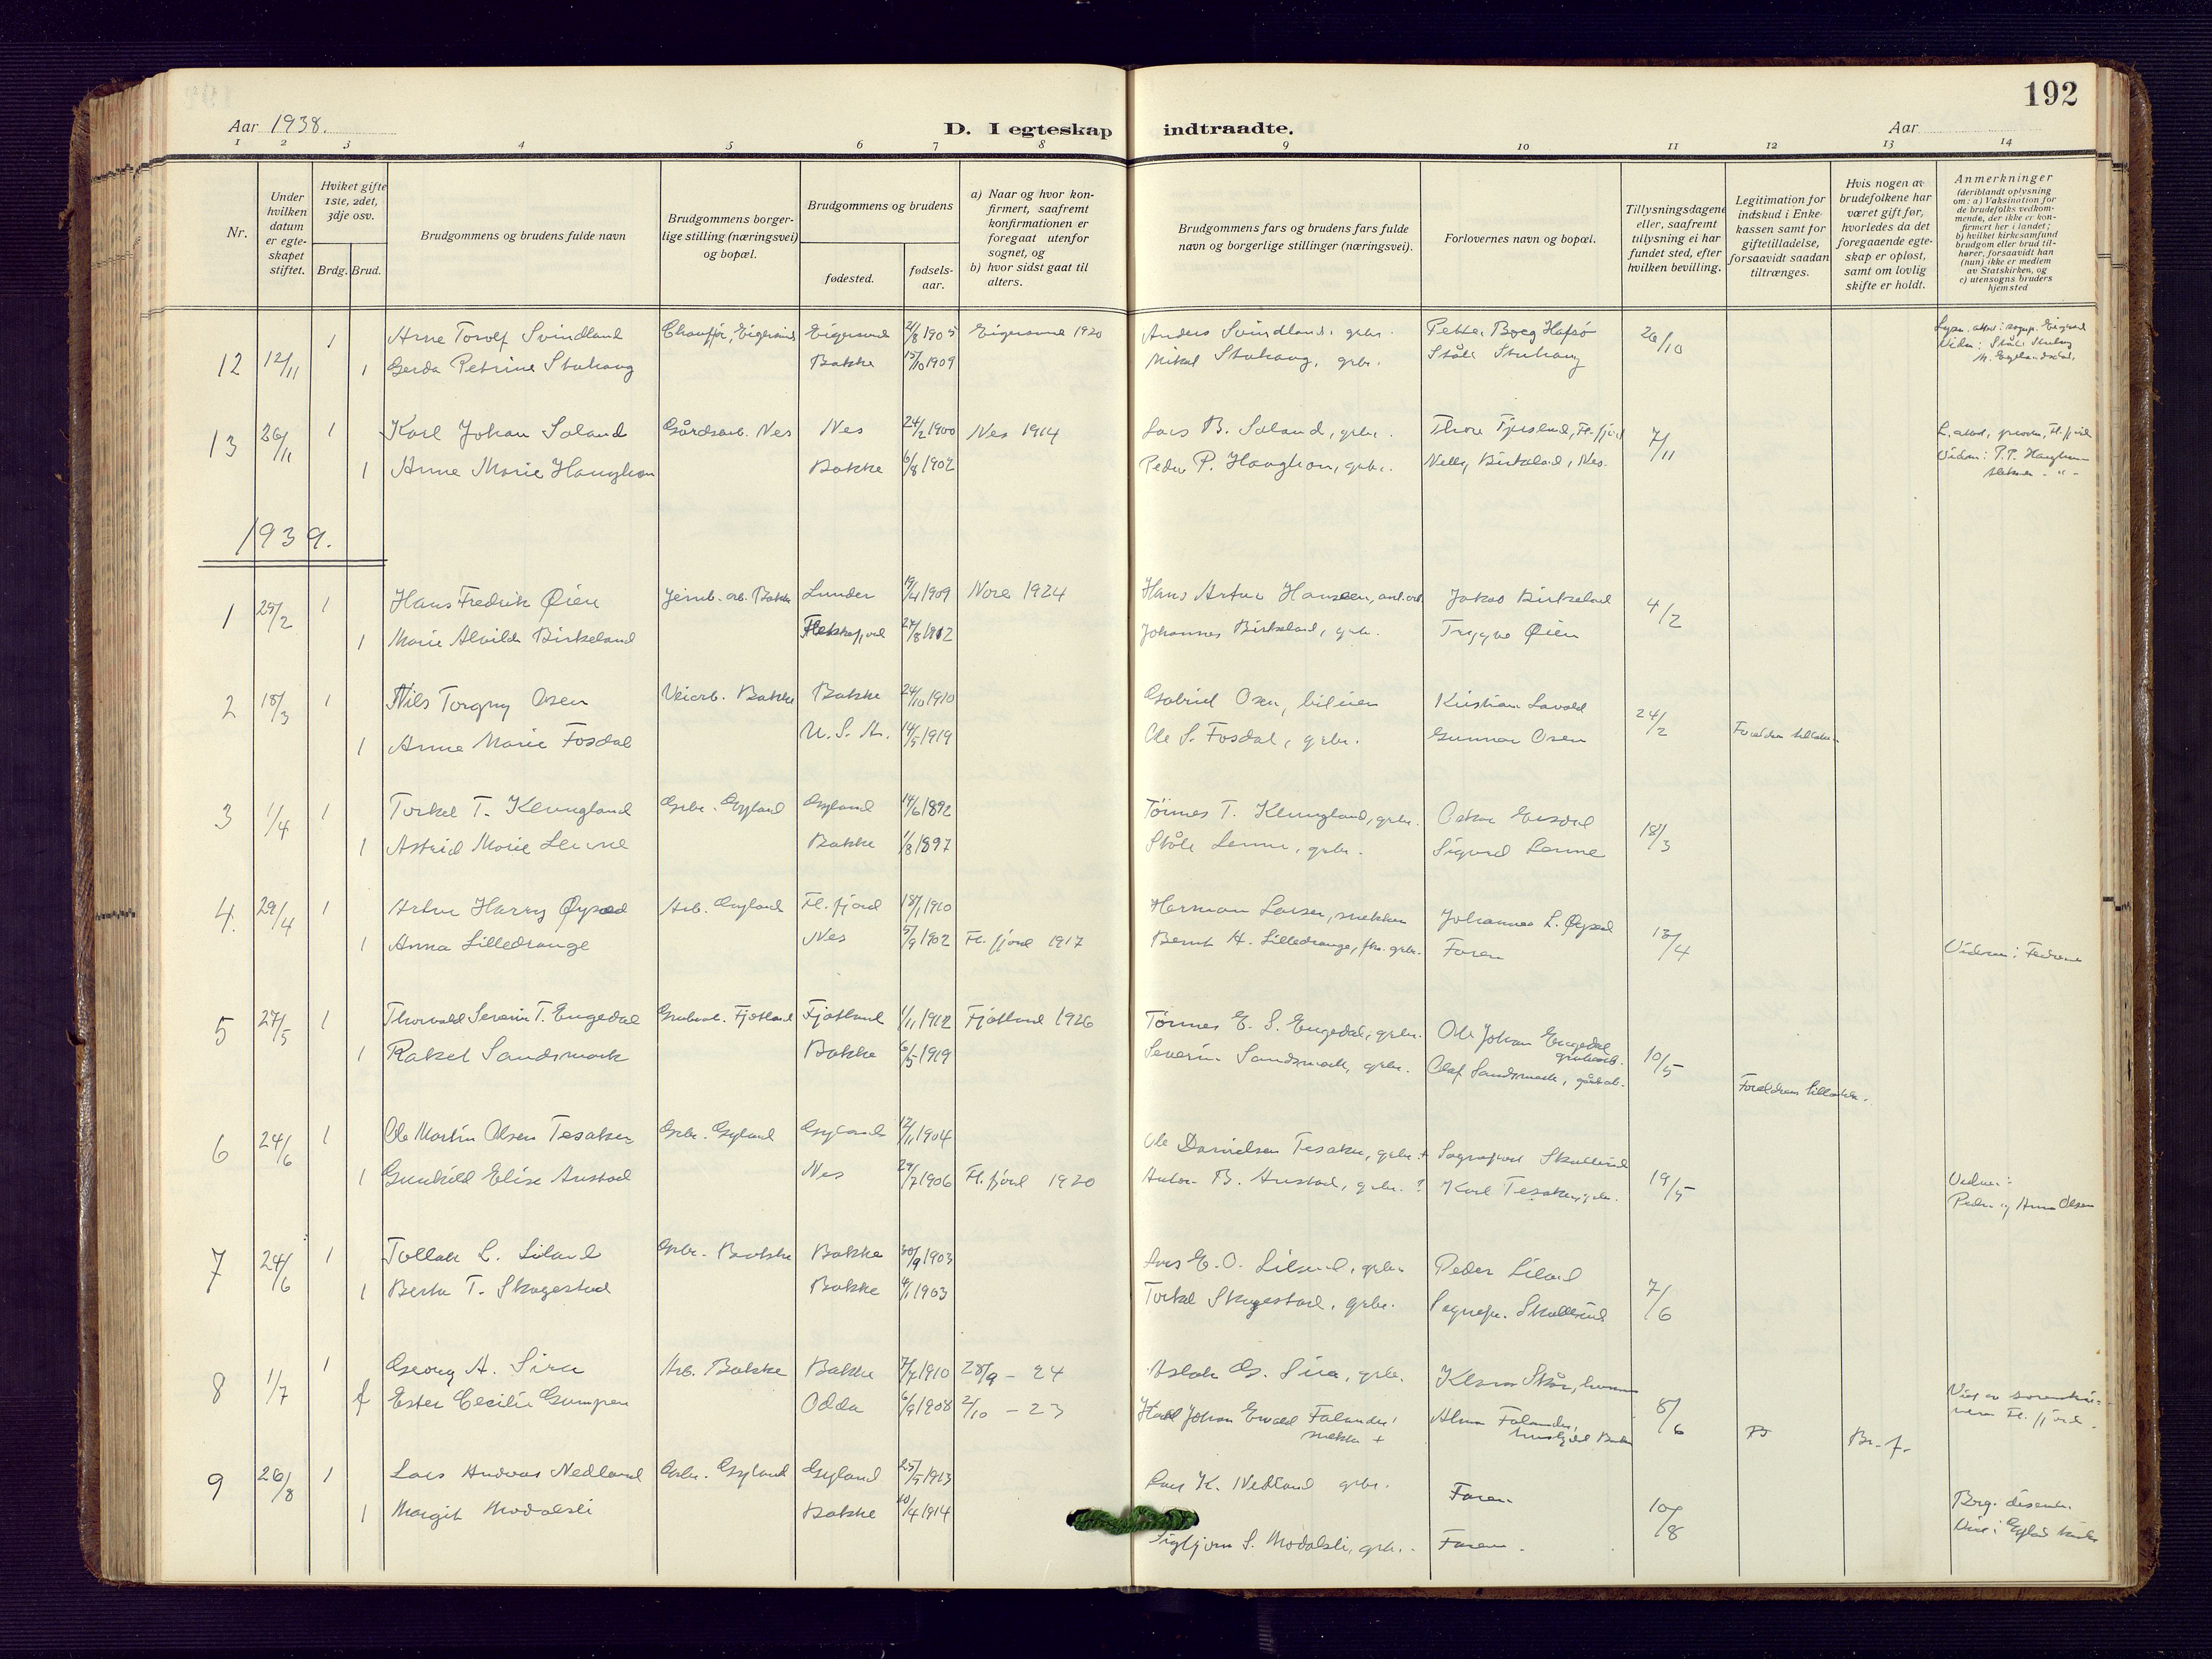 192
Aar 1938.
D. I egteskap indtraadte.
Aar
1 2 3 4 5 6 7 8 9 10 11 12 13 14
Nr.
Under hvilken datum er egteskapet stiftet.
Hviket gifte 1ste, 2det, 3dje osv.
Brdg. Brud.
Brudgommens og brudens fulde navn
Brudgommens borgerlige stilling (næringsvei) og bopæl.
Brudgommens og brudens
fødested.
fødselsaar.
a) Naar og hvor konfirmert, saafremt konfirmationen er foregaat utenfor sognet, og
b) hvor sidst gaat til alters.
Brudgommens fars og brudens fars fulde navn og borgerlige stillinger (næringsvei).
Forlovernes navn og bopæl.
Tillysningsdagene eller, saafremt tillysning ei har fundet sted, efter hvilken bevilling.
Legitimation for indskud i Enkekassen samt for giftetilladelse, forsaavidt saadan tiltrænges.
Hvis nogen av brudefolkene har været gift før, hvorledes da det foregaaende egteskap er opløst, samt om lovlig skifte er holdt.
Anmerkninger
(deriblandt oplysning om: a) Vaksination for de brudefolks vedkommende, der ikke er konfirmert her i landet; b) hvilket kirkesamfund brudgom eller brud tilhører, forsaavidt han (hun) ikke er medlem av Statskirken, og c) utensogns bruders hjemsted
12 12/11 1 Arne Torolf Svindland Chauffør, Eigersund Eigersund 2/8 1905 Eigersund 1920 Anders Svindland, grbr. Petter Boeg Hafsø 26/10
1 Gerda Petrine Stuhaug Bakke 15/10 1909 Mikal Stuhaug, grbr. Ståle Stuhaug
13 26/11 1 Karl Johan Saland Gårdsarb. Nes Nes 24/2 1900 Nes 1914 Lars B. Saland, grbr. Thore Tjusland, Fl.fjord 7/11
1 Anne Marie Haughom Bakke 6/8 1902 Peder P. Haughom, grbr. Nelly Birkeland, Nes.
1939.
1 25/2 1 Hans Fredrik Øien Jernb. arb. Bakke Lunder 19/4 1909 Nore 1924 Hans Artur Hansen, anl.arb. Jakob Birkeland 4/2
1 Marie Alvilde Birkeland Flekkefjord 27/8 1912 Johannes Birkeland, grbr. Trygve Øien
2 18/3 1 Nils Torgny Osen Veiarb. Bakke Bakke 24/10 1910 Gabriel Osen, bileier Kristian Lavold 24/2
1 Anna Marie Fosdal U.S.A. 14/5 1919 Ole S. Fosdal, grbr. Gunnar Osen Foreldrers tilladelse
3 1/4 1 Torkel T. Klungland Grbr. Gyland Gyland 14/6 1892 Tørnes T. Klungland, grbr. Oskar Eesdal 18/3
1 Astrid Marie Lenne Bakke 1/8 1897 Ståle Lenne, grbr. Sigurd Lenne
4. 29/4 1 Artur Harry Øysæd Arb. Gyland Fl.fjord 18/1 1910 Herman Larsen, snekker Johannes L. Øysæd 13/4
1 Anna Lilledrange Nes 5/9 1902 Fl.fjord 1917 Bernt H. Lilledrange, fhv. grbr. Faren
5 27/5 1 Thorvald Severin T. Engedal Grubearb. Fjotland Fjotland 1/11 1912 Fjotland 1926 Tønnes E. S. Engedal, grbr. Ole Johan Engedal grubearb. 10/5
1 Rakel Sandsmark Bakke 6/5 1919 Severin Sandsmark, grbr. Olaf Sandsmark, gårdarb. Foreldrers tilladelse.
6 24/6 1 Ole Martin Olsen Tesaker Grbr. Gyland Gyland 12/11 1904 Ole Danielsen Tesaker, grbr. + Sognepr. Skullerud 19/5
1 Gunhild Elise Austad Nes 29/7 1906 Fl.fjord 1920 Anton B. Austad, grbr. ? Karl Tesaker, grbr. Peder og Anna Olsen
7 24/6 1 Tollak L. Liland Grbr. Bakke Bakke 30/9 1903 Lars E. O. Liland, grbr. Peder Liland 7/6
1 Berta T. Skagestad Bakke 4/1 1903 Torkel Skagestad, grbr. Sognepr. Skullerud
8 1/7 1 Georg A. Sira Arb. Bakke Bakke 7/7 1910 28/9 - 24 Aslak G. Sira, grbr. Klara Skår, 8/6
f Ester Cecilie Gumpen Odda 6/9 1908 2/10 - 23 Karl Johan Ewald Falander, snekker + Alma Falander, Br. f.
9 26/8 1 Lars Andreas Nedland Grbr. Gyland Gyland 25/5 1913 Lars K. Nedland grbr. Faren 10/8
1 Margit Modalsli Bakke 10/4 1914 Sigbjørn S. Modalsli, grbr. Faren.